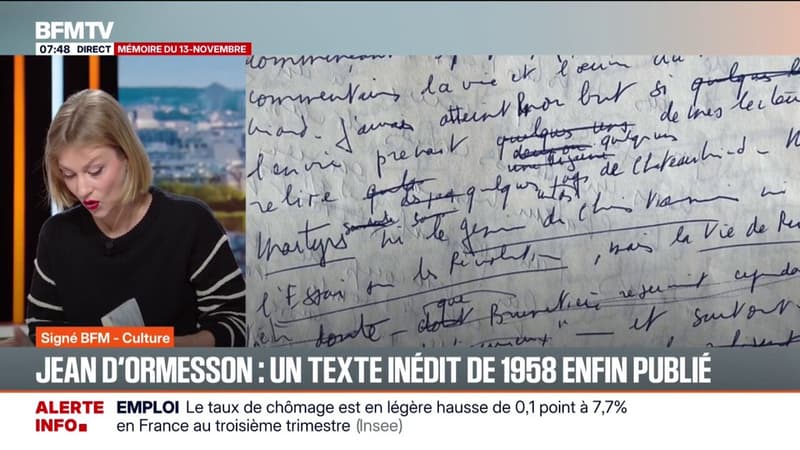 BFMTV
07:48 DIRECT MÉMOIRE DU 13-NOVEMBRE
commentaires la vie et l'œuvre du
J'aurais atteint mon but si quelques
l'envie prenait quelques uns de mes lecteurs
relire quelques pages de Chateaubriand – 
Martyrs ni le génie du Christianisme ni
l'Essai sur les Révolutions, mais la Vie de
que Brunetière
et surtout
Signé BFM - Culture
JEAN D'ORMESSON : UN TEXTE INÉDIT DE 1958 ENFIN PUBLIÉ
ALERTE INFO
EMPLOI Le taux de chômage est en légère hausse de 0,1 point à 7,7%
en France au troisième trimestre (Insee)